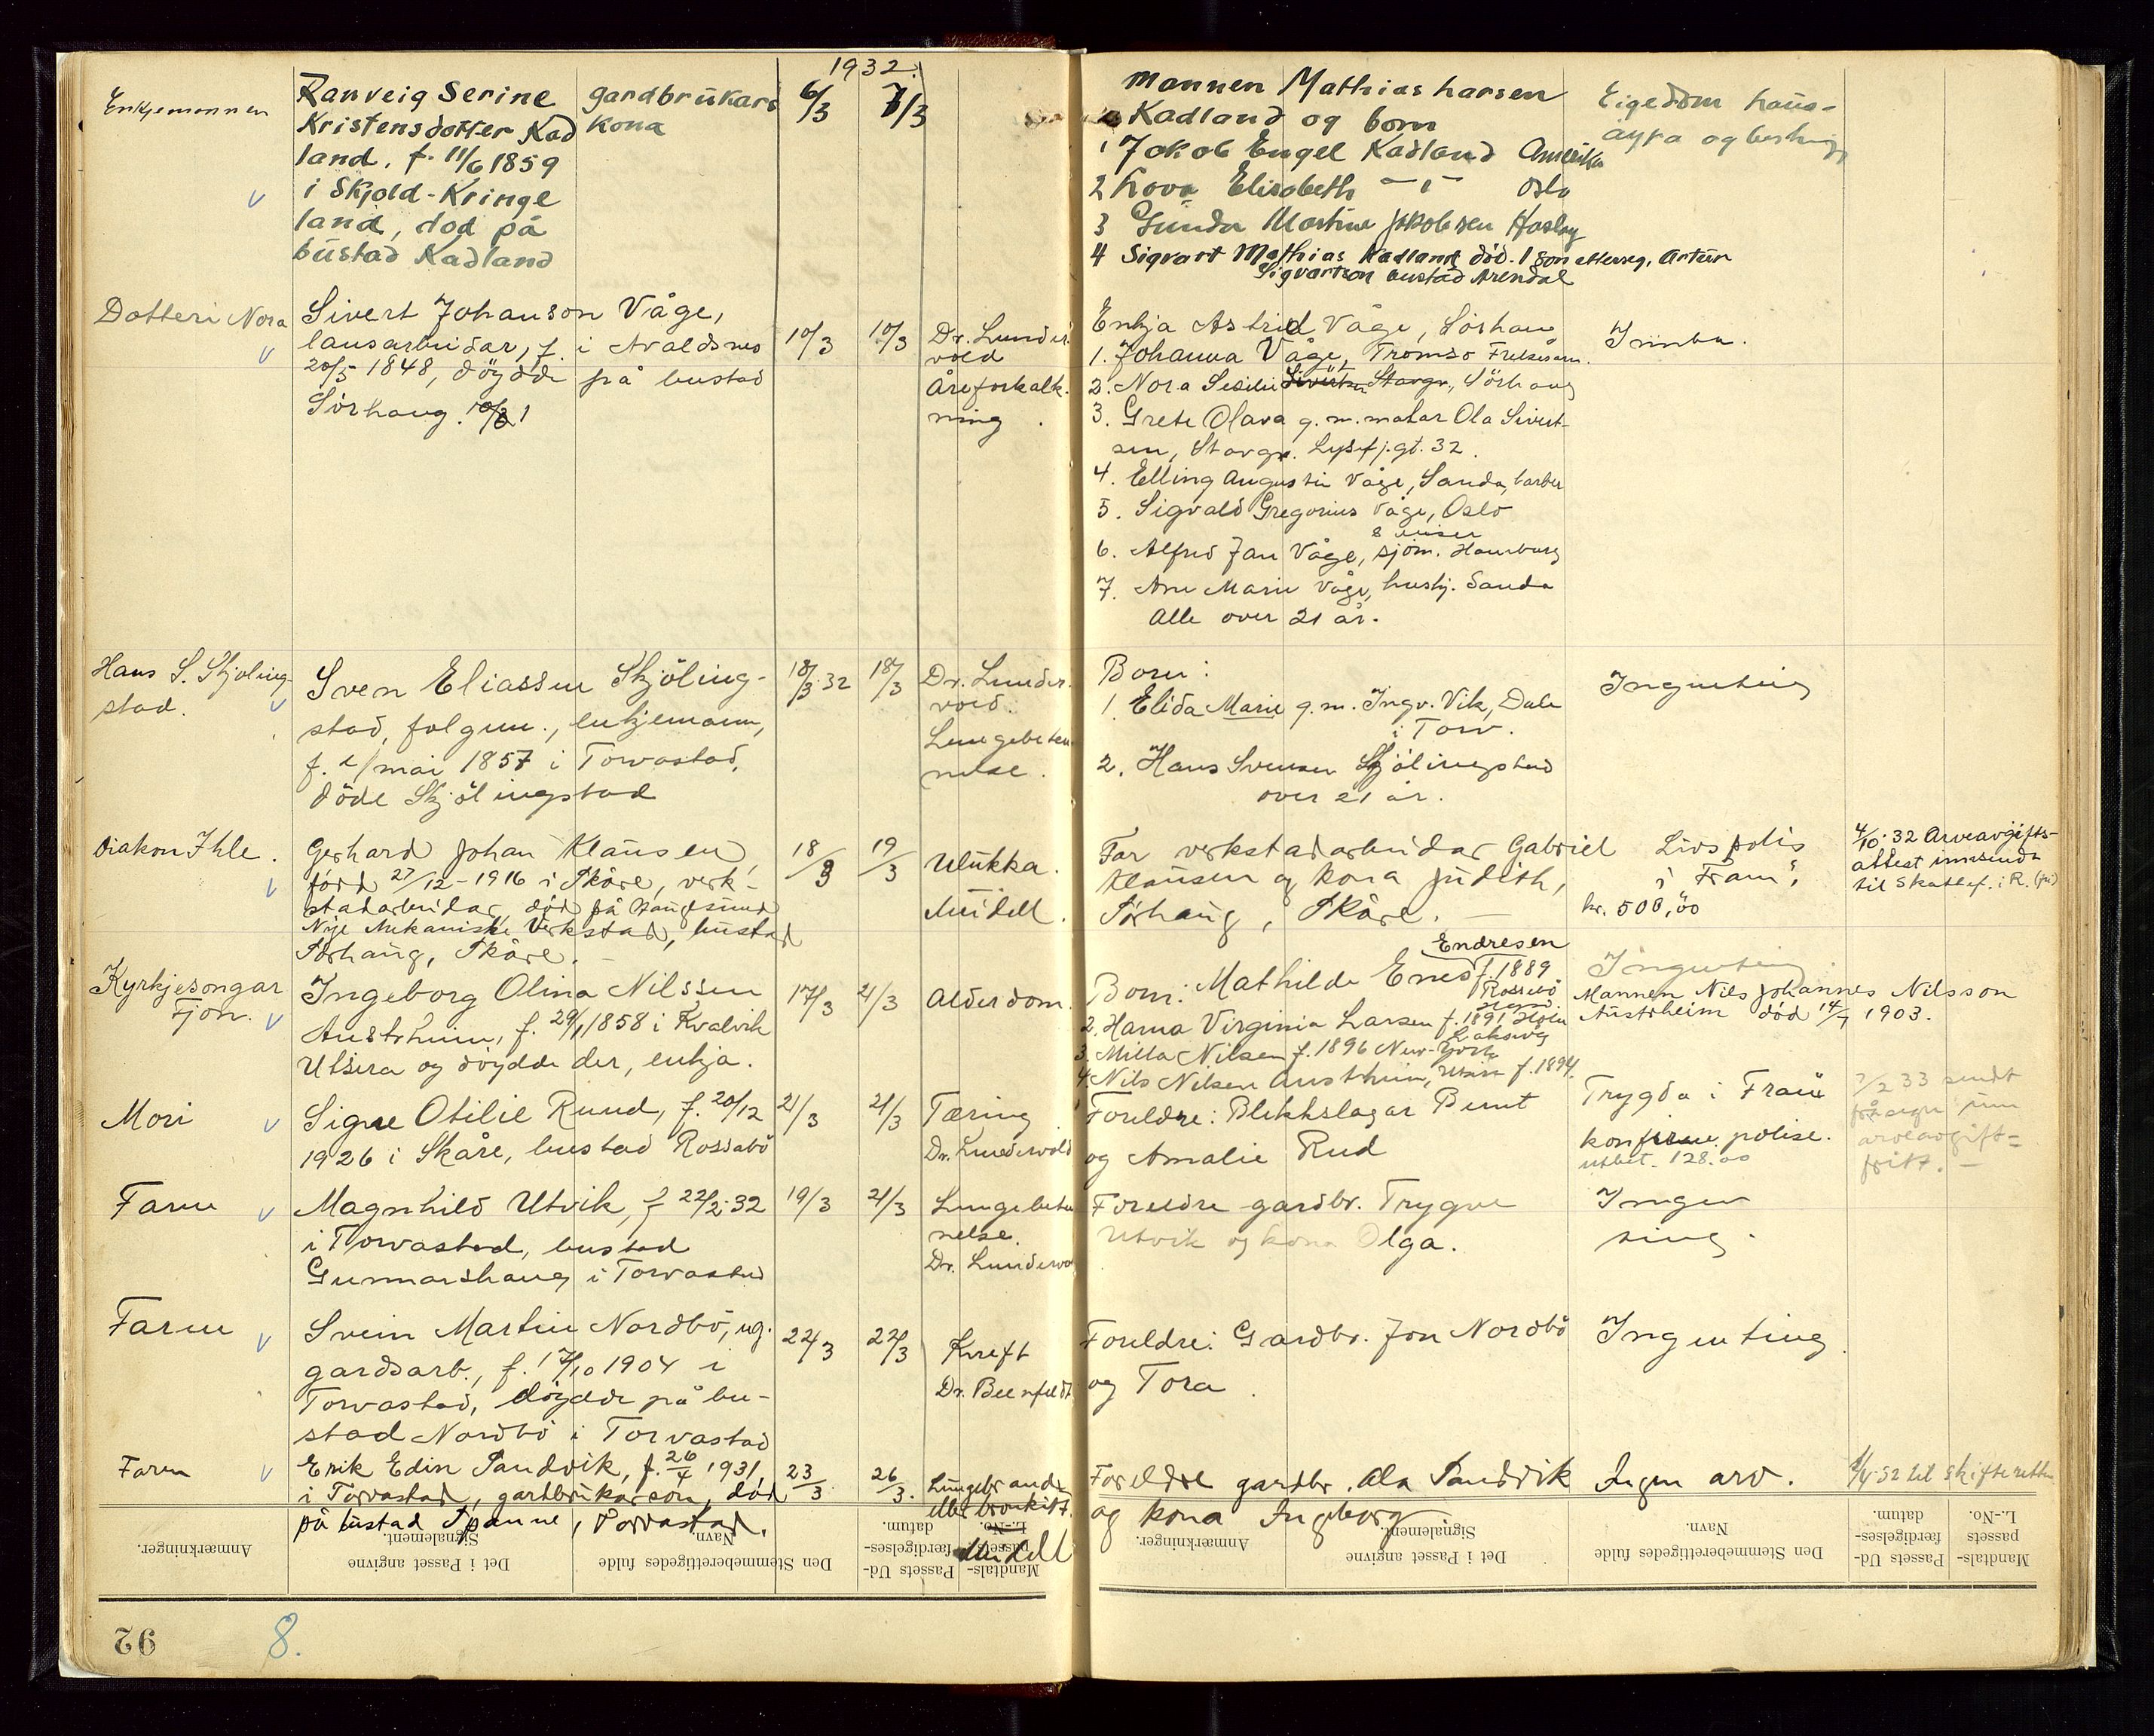 1932.
Enkjemannen
Ranveig Serine
Kristensdotter Kad
land, f. 11/6 1859
i Skjold-Kringe
land, død på
bustad Kadland
gardbrukars
kona
6/3
7/3
Mannen Mathias Larsen
Kadland og born
1 Jakob Engel Kadland Amerika
2 Lova Elisabeth -"- Oslo
3 Gunda Martine Jakobsen
4 Sigvart Mathias Kadland død. 1 son etterseg, Artur
Sigvartson bustad Arendal
Eigedom
og
Dotteri Nora
Sivert Johanson Våge,
lausarbeidar, f. i Avaldsnes
20/5 1848, døydde på bustad
Sörhaug. 10/3
10/3
10/3
Dr. Lunder
vold
Åreforkalk-
ning.
Enkja Astrid Våge, Sörhaug
1. Johanna Våge, Tromsö Frelsesarm.
2. Nora Sesilie Stavgr., Sörhaug
3. Grete Olava g. m. malar Ola Sivert-
sen, Stavgr. Lysefj.gt. 32.
4. Elling Augustin Våge, Sauda, barber
5. Sigvald Gregorius Våge, Oslo
6. Alfred Jan Våge, sjöm. Hamburg
7. Ane Marie Våge, hushj. Sauda
Alle over 21 år.
Innbu.
Hans S. Skjöling-
stad.
Sven Eliassen Skjöling-
stad, folgem., enkjemann,
f. 1/mai 1857 i Torvastad,
döde Skjölingstad
18/3.32
18/3
Dr. Lunder-
vold.
Lungebeten-
nelse.
Born:
1. Elida Marie g.m. Ingv. Vik, Dale
i Torv.
2. Hans Svensen Skjölingstad
over 21 år.
Ingenting
Diakon Ihle.
Gerhard Johan Klausen,
född 27/12-1916 i Skåre, verk-
stadarbeidar död på Haugesund
Nye Mekaniske Verkstad, bustad
Sörhaug, Skåre.
18/3
19/3
Ulukka.
Midell.
Far verkstadarbeidar Gabriel
Klausen og kona Judith,
Sörhaug, Skåre. —
Livspolis
i "Fram",
kr. 500,00
4/10.32 Arveavgifts-
attest innsend
til Skattef. i R. (fri)
Kyrkjesongar
Fjon.
Ingeborg Olina Nilssen
Austrheim, f. 29/1 1858 i Kvalvik
Utsira og döydde der, enkja.
17/3
21/3
Alderdom.
Born: Mathilde Enes Endresen f. 1889
Rossebö
2. Hanna Virginia Larsen f. 1891
3. Milla Nilsen f. 1896 New-York
4. Nils Nilsen Austrheim, Utsira f. 1894.
Ingenting.
Mannen Nils Johannes Nilsson
Austrheim död 14/7 1903.
Mori
Signe Otilie Ruud, f. 20/12
1926 i Skåre, bustad Rossabö
21/3
21/3
Tæring
Dr. Lundervold
Foreldre: Blikkslagar Bernt
og Amalie Rud
Trygda i Fram
konfirm. polise.
utbet. 128.00
7/2 33 sendt
um
arveavgift-
fritt. —
Faren
Magnhild Utvik, f 22/2.32
i Torvastad, bustad
Gunnarshaug i Torvastad
19/3
21/3
Lungebeten
nelse.
Dr. Lundervo
Foreldre gardbr. Trygve
Utvik og kona Olga.
Ingen
ting.
Faren
Svein Martin Nordbö, ug.
gardsarb., f. 17/10 1904 i
Torvastad, döydde på bu-
stad Nordbö i Torvastad
22/3
22/3
Kreft
Dr. Beenfeldt
Foreldre: Gardbr. Jon Nordbö
og Tora.
Ingenting.
Faren
Erik Edin Sandvik, f. 26/4 1931,
i Torvastad, gardbrukarson, död
på bustad Spanne, Torvastad.
23/3
26/3.
Lungebrand
eller bronkitt.
Midell
Foreldre gardbr. Ola Sandvik
og kona Ingeborg.
Ingen arv.
1/4.32 til skifteretten
Anmærkninger.
Det i Passet angivne
Signalement.
Den Stemmeberettigedes fulde
Navn.
Passets Ud-
færdigelses-
datum.
Mandtals-
passets
L.-No.
Anmærkninger.
Det i Passet angivne
Signalement.
Den Stemmeberettigedes fulde
Navn.
Passets Ud-
færdigelses-
datum.
Mandtals-
passets
L.-No.
92
8.